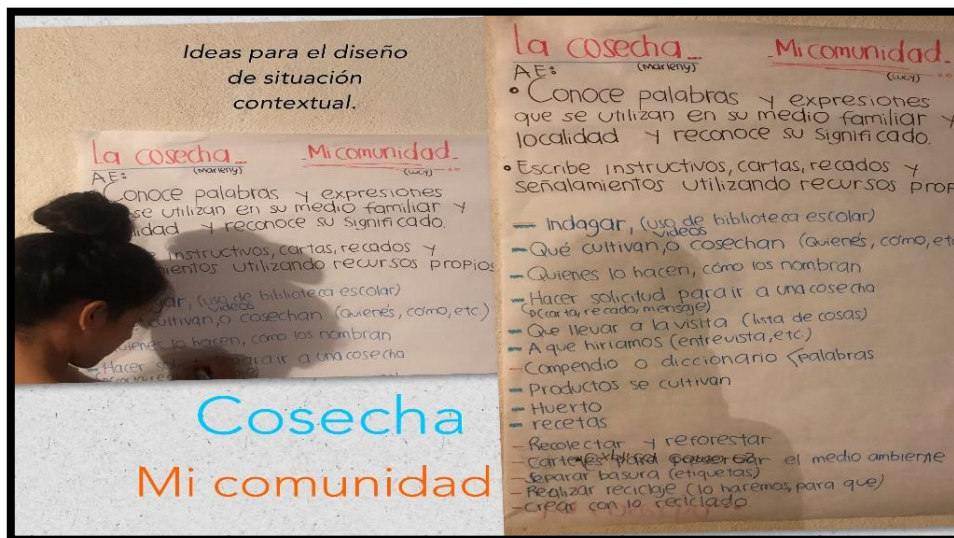 Ideas para el diseño
de situación
contextual.
La cosecha...
(Marleny)
Mi comunidad.
(Lucy)
AE:
Conoce palabras y expresiones
se utilizan en su medio familiar y
lidad y reconoce su significado.
instructivos, cartas, recados y
mientos utilizando recursos propios
gar, (uso de biblioteca escolar)
videos
cultivan, o cosechan (Quienes, como, etc.)
uienes lo hacen, como los nombran
-Hacer para ir a una cosecha
Cosecha
Mi comunidad
La cosecha...
(Marleny)
Mi comunidad.
(Lucy)
AE:
• Conoce palabras y expresiones
que se utilizan en su medio familiar y
localidad y reconoce su significado.
• Escribe instructivos, cartas, recados y
señalamientos utilizando recursos prop
- Indagar, (uso de biblioteca escolar)
videos
- Qué cultivan, o cosechan (Quienes, como, etc
- Quienes lo hacen, como los nombran
- Hacer solicitud para ir a una cosecha
(carta, recado, mensaje)
- Que llevar a la visita (lista de cosas)
- A que hiriamos (entrevista, etc.)
- Compendio o diccionario palabras
- Productos se cultivan
- Huerto
- recetas
- Recolectar y reforestar
- Carteles para el medio ambiente
- Separar basura (etiquetas)
- Realizar reciclaje (lo haremos, para que)
- Crear con lo reciclado